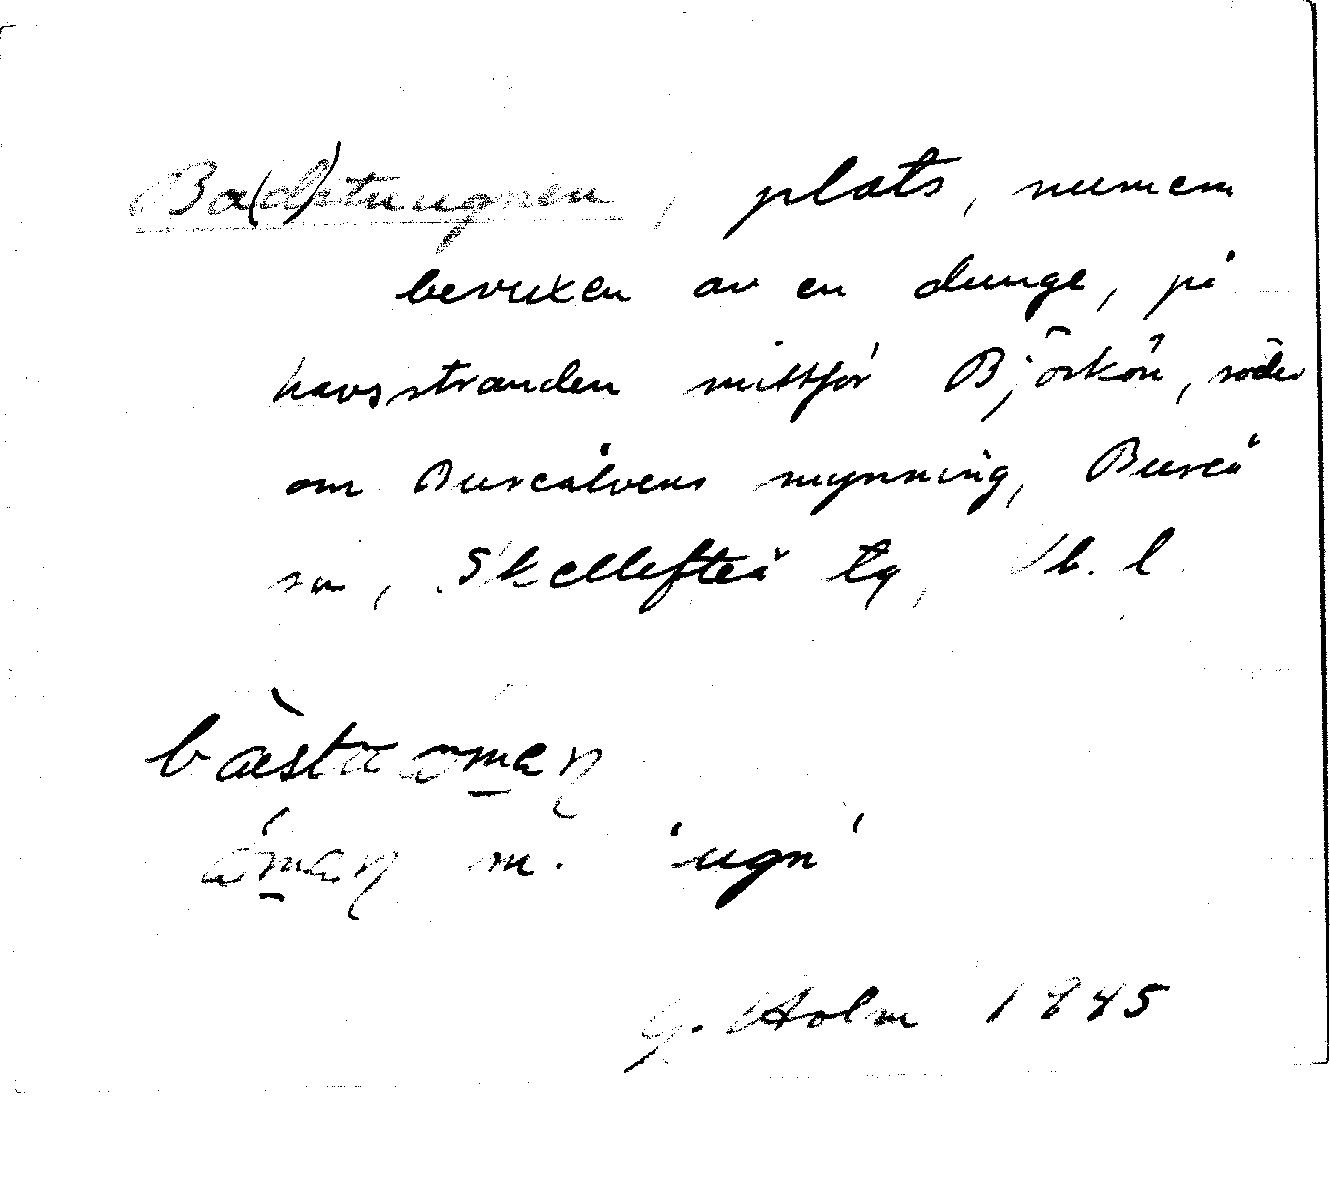 Ba(d)stuugnen, plats, numera
bevuxen av en dunge, på
havsstranden mittför Björkön, söder
om Bureälvens mynning, Bureå
sn, Skellefteå tg, Vb. l.
bàsta oman
óman m. 'ugn'
G. Holm 1945